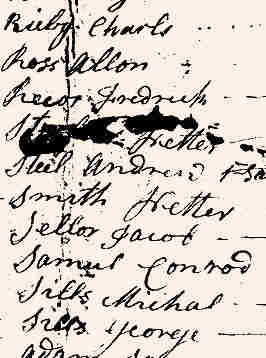 Rieby Charls
Ross Allon
Reeor Fredrick
Hetter
Steel Andrew
Smith Hetter
Sellor Jacob
Samul Conrod
Sills Michal
Sills George
Adam